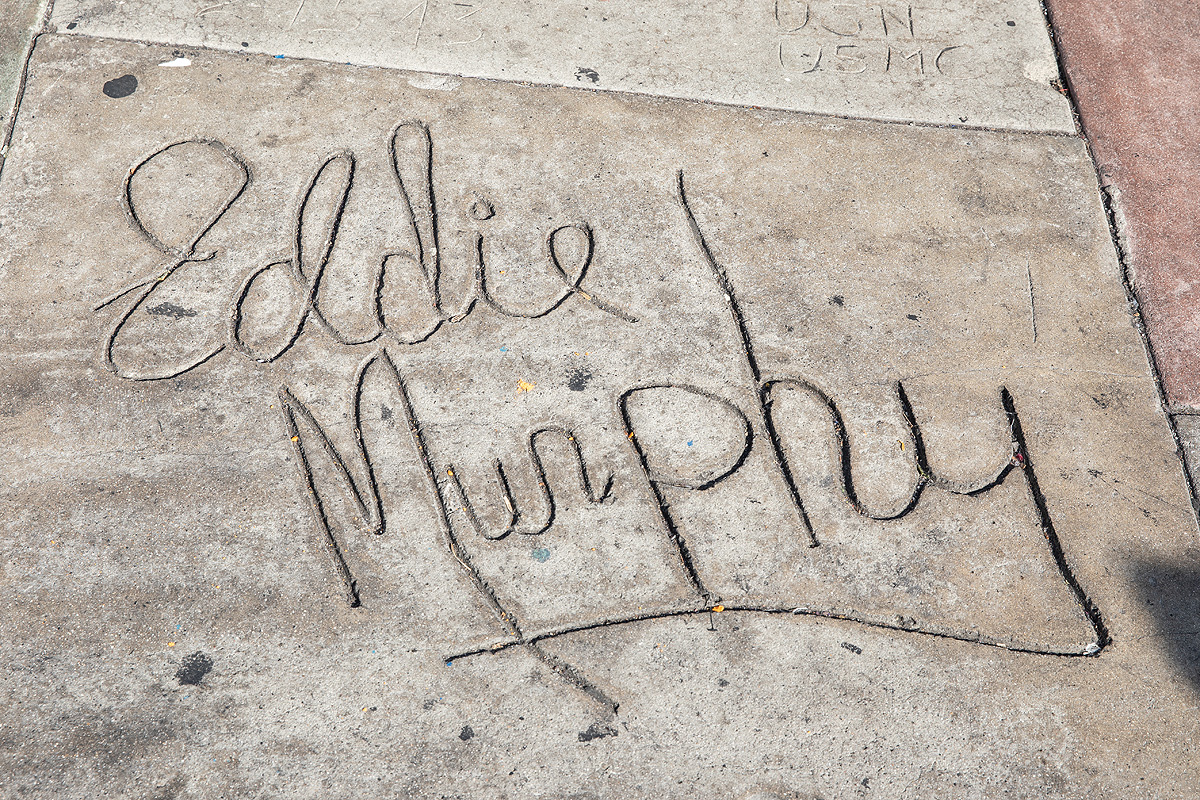 USN
USMC
Eddie
Murphy